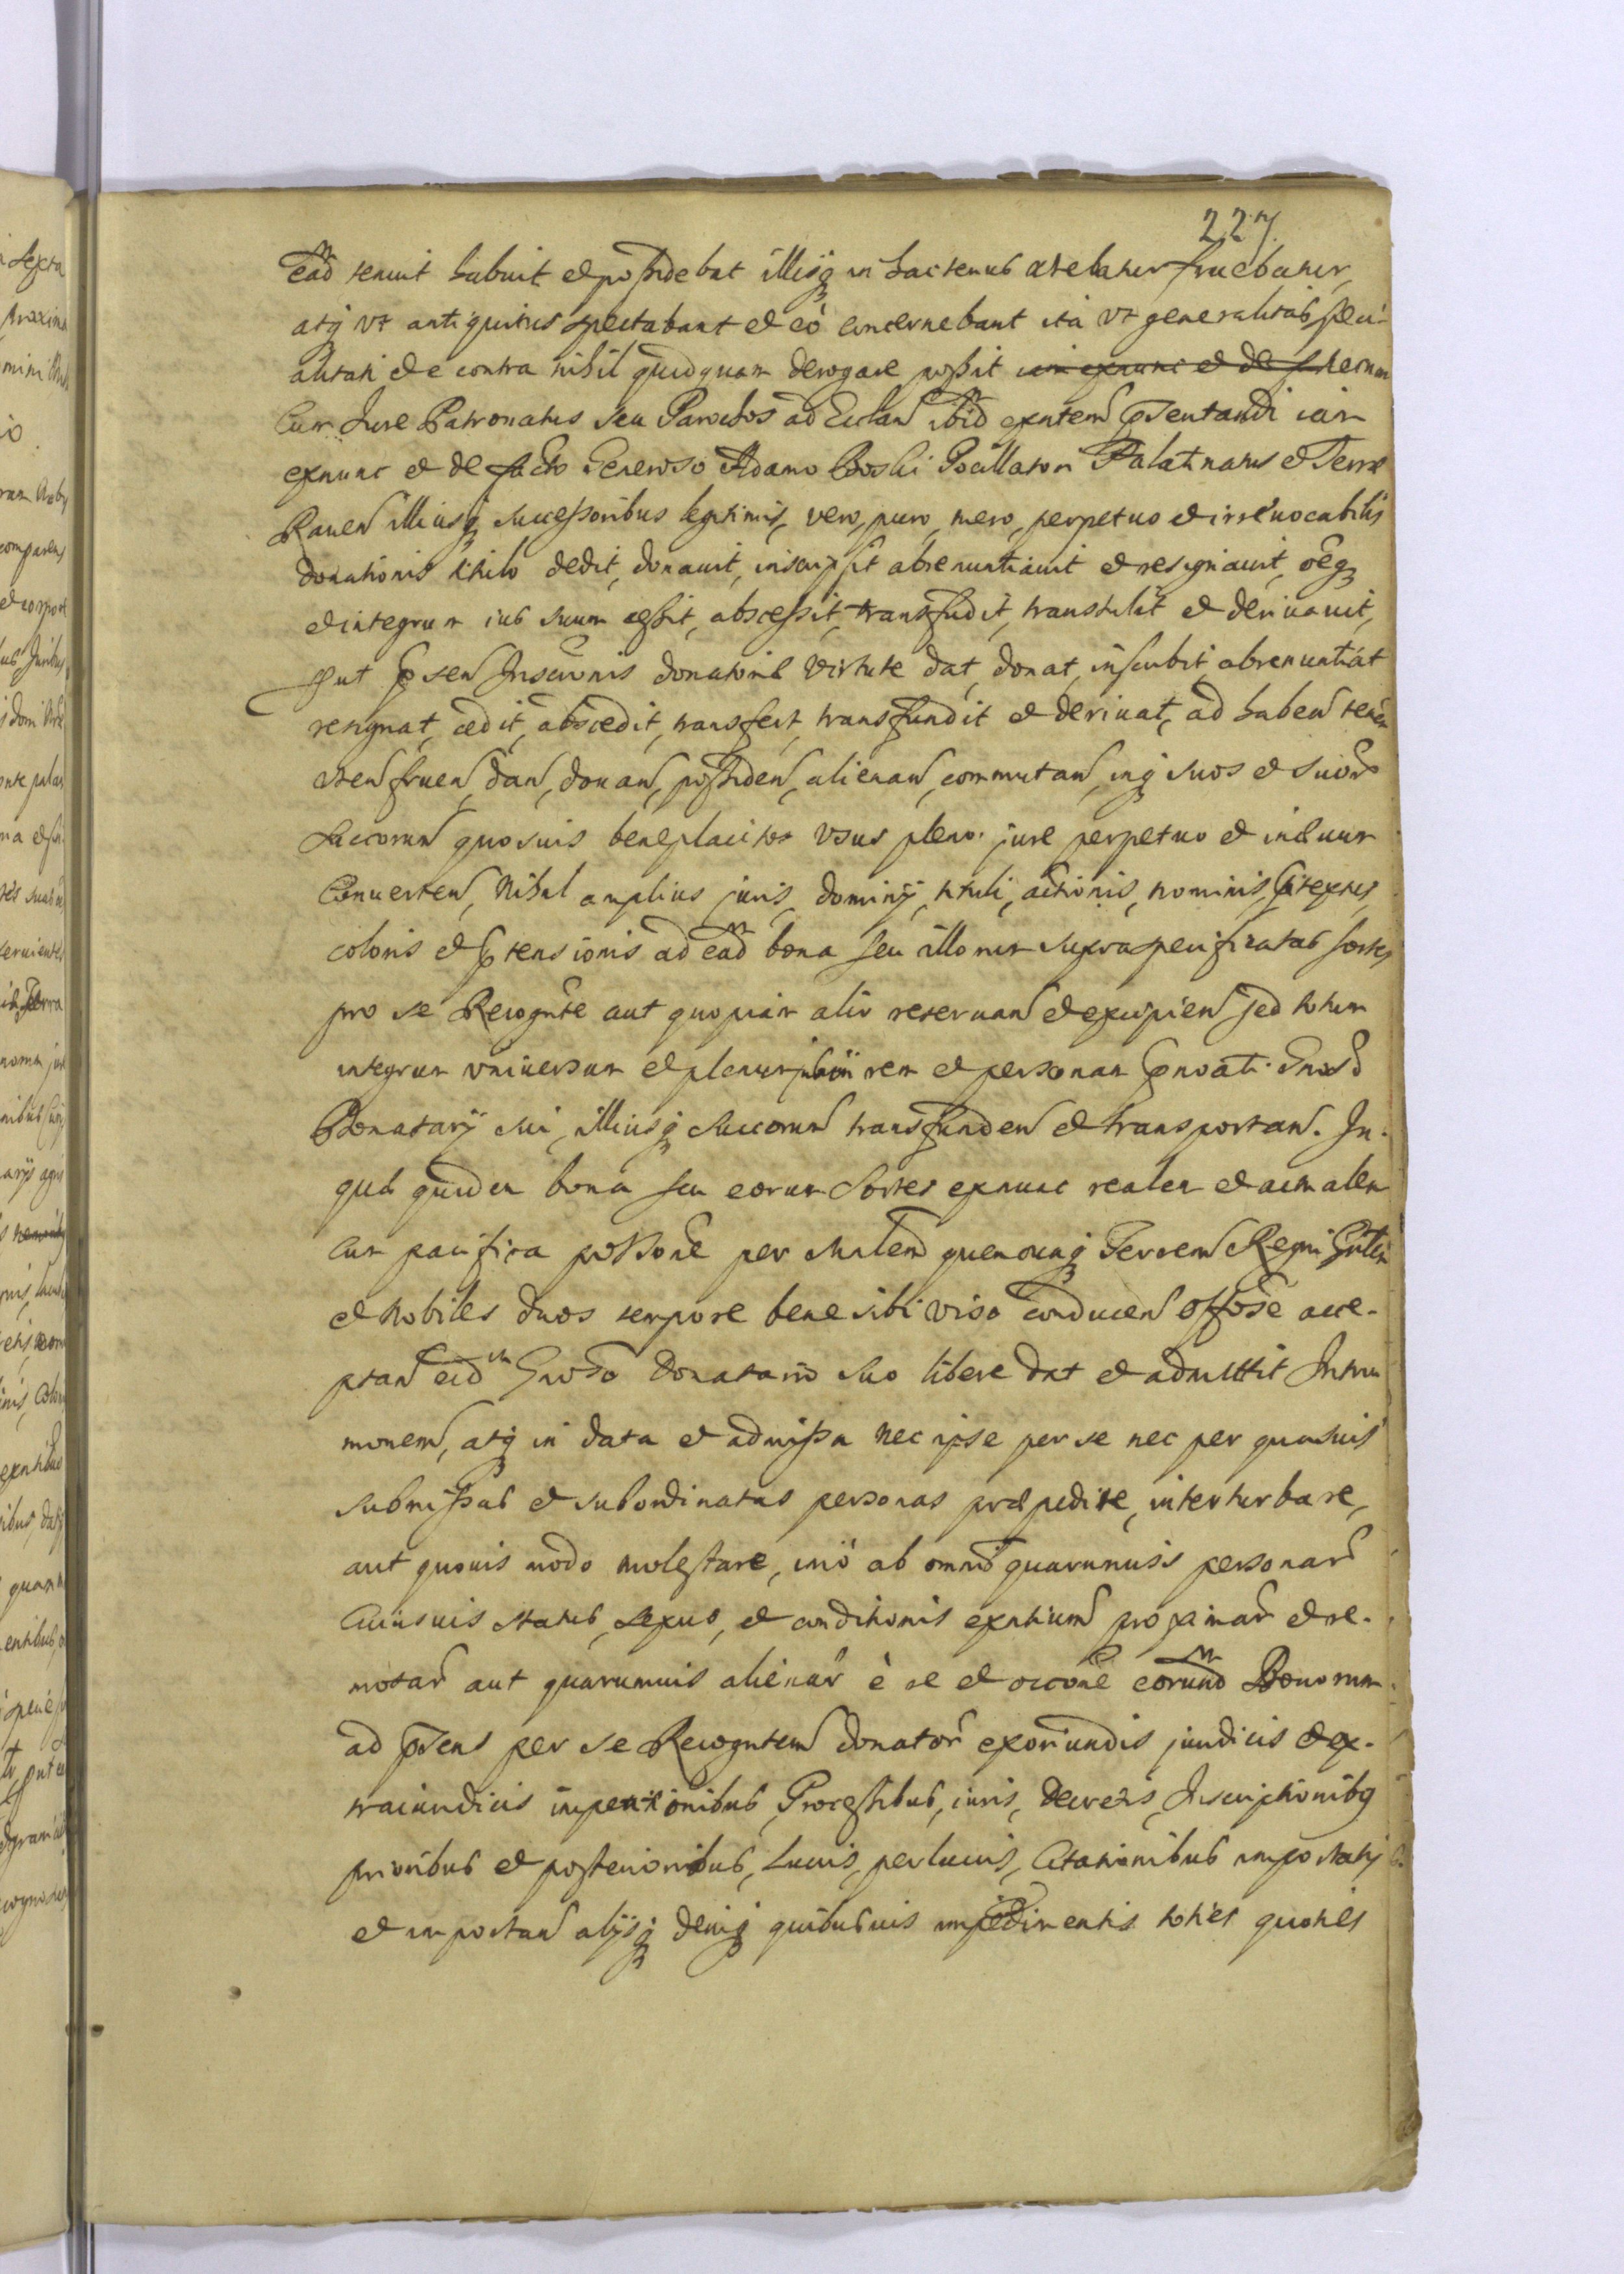 227.
ead tenuit habuit et possidebat illisq in hactenus utebatur fruebatur,
atq vt antiquitus spectabant et eò concernebant ita vt generalitas speci-
alitati et e contra nihil quidquam derogare possit iam exnunc et de f
Cum Jure Patronatus seu Parochos ad Eccłan ibid exntem pntandi iam
exnunc et de facto Generoso Adamo Pocillatori Palatinatus et Terræ
Raven illiusq successoribus legitimis, vero, puro, mero, perpetuo et irrevocabilis
donationis titulo dedit, donauit, inscripsit abrenuntiauit et resignauit, oeq
et integrum ius suum cessit, abscessit, transfudit, transtulit et deriuauit,
put psen Inscrionis donatoriæ virtute dat, donat, inscribit, abrenuntiat
resignat, cedit, abscedit, transfert, transfundit et deriuat, ad haben tenen
vten fruen, dan, donan, possiden, alienan, commutan, inq suos et suor
Succorum quosuis beneplacitos vsus pleno jure perpetuo et in æuum
Conuerten, Nihil amplius juris, dominij, tituli, actionis, nominis, ptextus,
coloris et ptensionis ad ead bona seu illorum supraspecificatas sortes
pro se Recognte aut quopiam alio reseruan et excipien sed totum
integrum vniuersum et plenum in rem et personam pnoati Gnosi
Donatarij sui, illiusq Succorum transfunden et transportan. In
quæ quidem bona seu eorum Sortes exnunc realem et actualem
Cum pacifica possone per Mrlem quemcunq Terren Regni Gnlem
et Nobiles duos tempore bene sibi viso conducen Offose acce-
ptan eid Gnoso Donatario suo libere dat et admittit Intro
monem, atq in data et admissa nec ipse per se nec per quasuis
submissas et subordinatas personas præpedire, interturbare,
aut quouis modo molestare, imò ab omni quarumuis personar
Cuiusuis status, sexus, et conditionis exntium proximar et re-
motar aut quarumuis alienar è re et occone eorund Bonorum
ad psens per se Recogntem donator exoriundis juridicis et ex-
traiuridicis impetitionibus, Processibus, iuris, decretis, Inscriptionibq
prioribus et posterioribus, Lucris, perlucris, Citationibus importatis
et importan alijsq deniq quibusuis impedimentis toties quoties